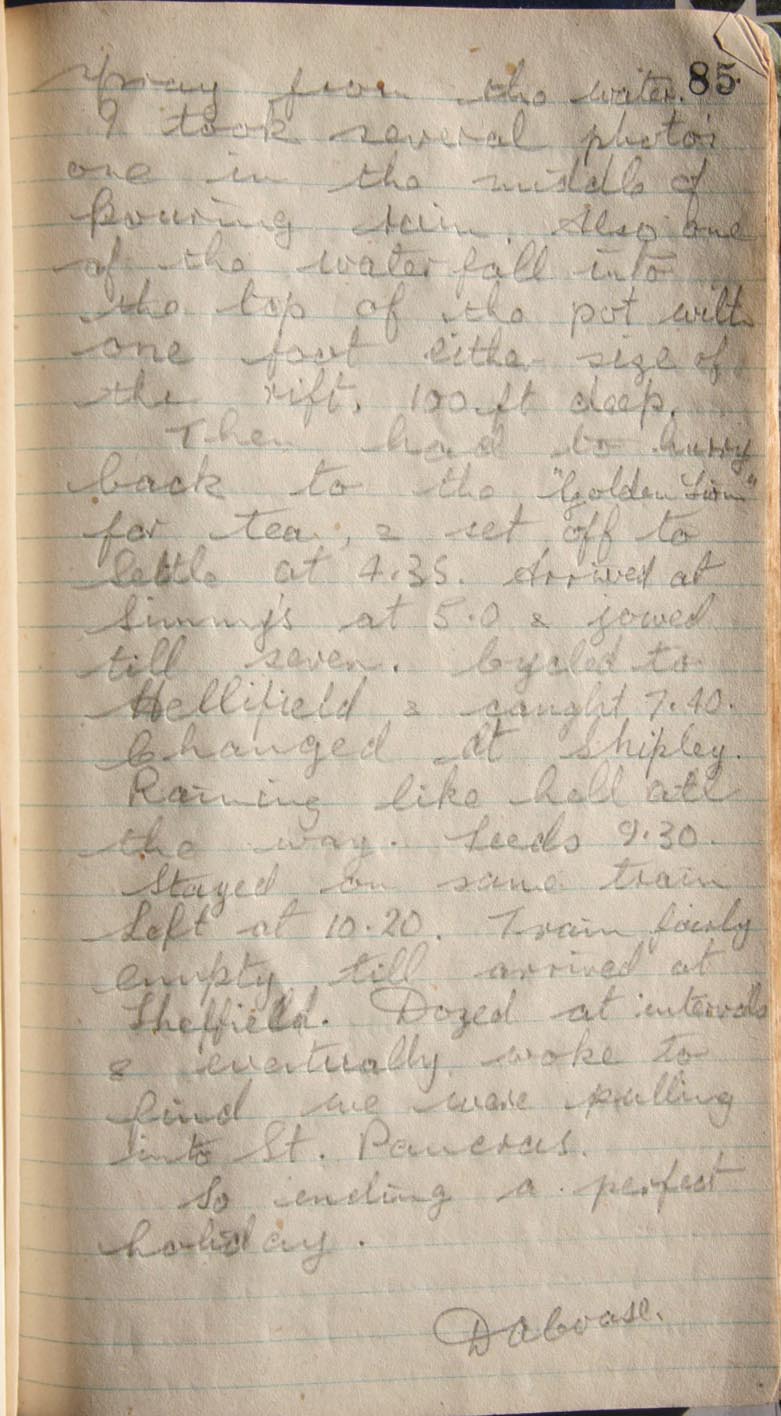 85
spray from the water.
I took several photos
one in the middle of
pouring rain. Also one
of the waterfall into
the top of the pot with
one foot either size of
the rift. 100 ft deep.
Then had to hurry
back to the "Golden Lion"
for tea, & set off to
Settle at 4.35. Arrived at
Simmy's at 5.0 & jowed
till seven. Cycled to
Hellifield & caught 7.40.
Changed at Shipley.
Raining like hell all
the way. Leeds 9.30.
Stayed on same train
Left at 10.20. Train fairly
empty till arrived at
Sheffield. Dozed at intervals
& eventually woke to
find we were pulling
into St. Pancras.
So ending a perfect
holiday.